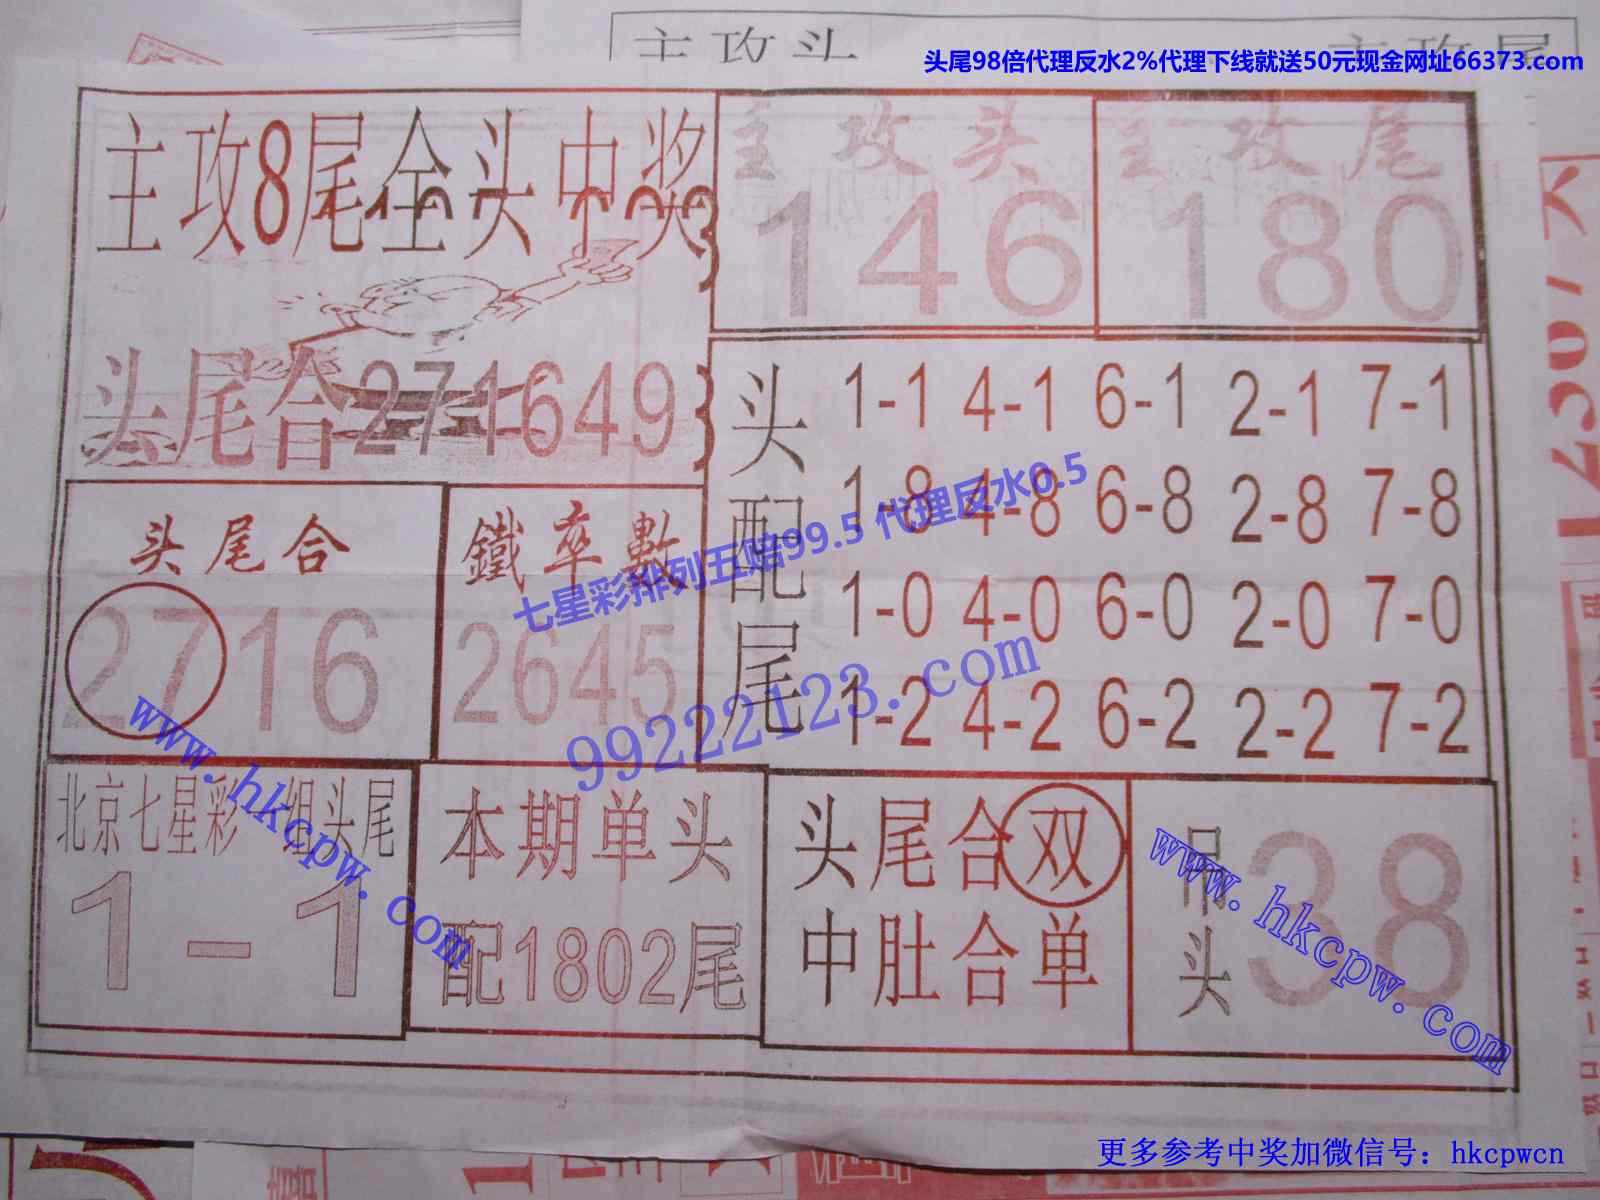 主攻头
主攻尾
头尾98倍代理反水2%代理下线就送50元现金网址66373.com
主攻8尾全头中奖
主攻头
146
主攻尾
180
头尾合271649
头配尾
1-1 4-1 6-1 2-1 7-1
1-8 4-8 6-8 2-8 7-8
1-0 4-0 6-0 2-0 7-0
1-2 4-2 6-2 2-2 7-2
头尾合
2716
鐵卒數
2645
七星彩排列五赔99.5 代理反水0.5
99222123.com
www.hkcpw.com
北京七星彩 组头尾
1-1
本期单头
配1802尾
头尾合双
中肚合单
吊头
38
www.hkcpw.com
更多参考中奖加微信号：hkcpwcn